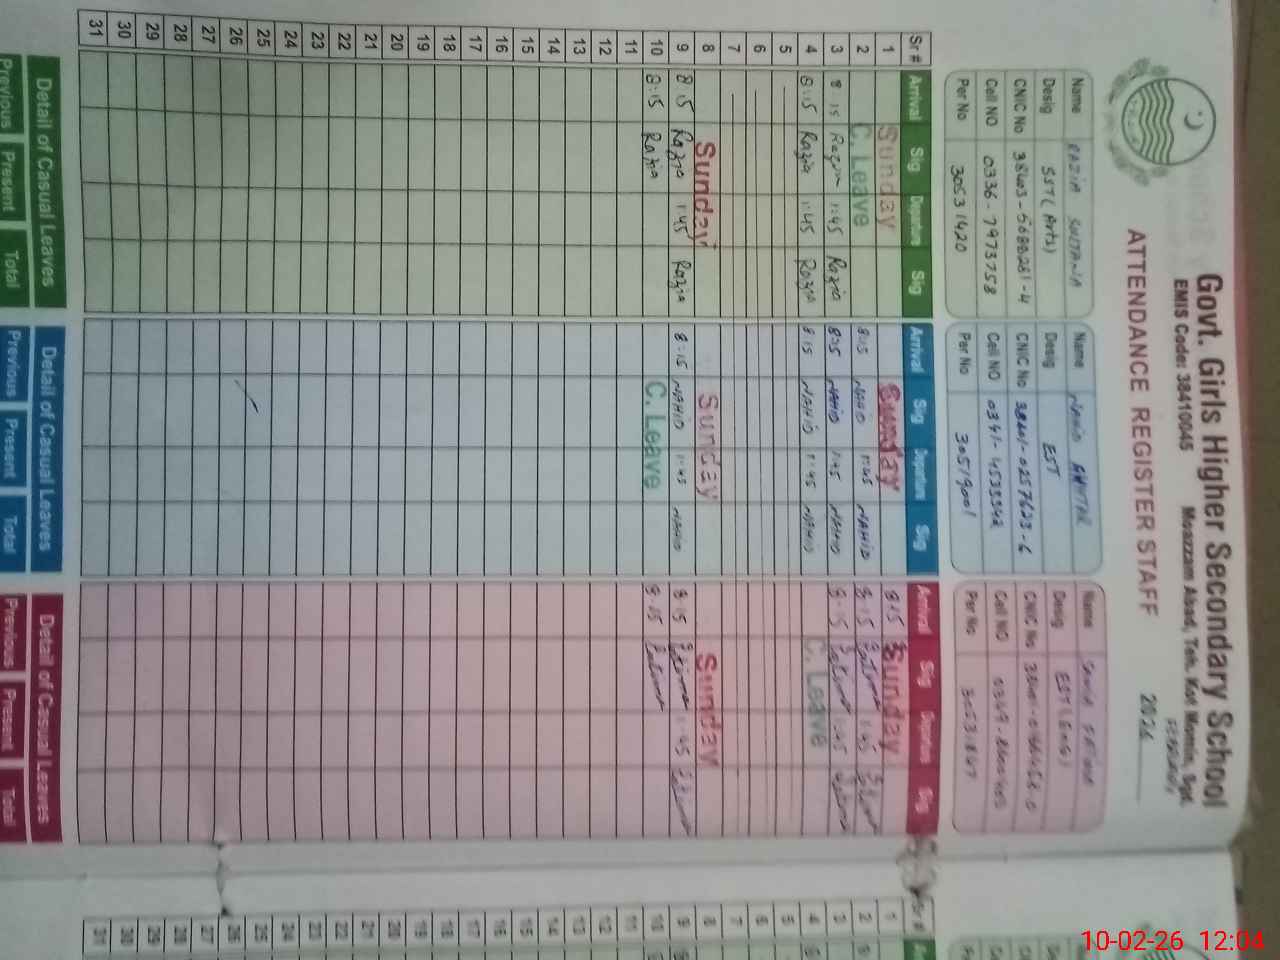 Govt. Girls Higher Secondary School
EMIS Code: 38410045 Moazzam Abad, Teh. Kot Momin, Sgd.
ATTENDANCE REGISTER STAFF 2026
FEBRUARY
Name RAZIA SULTANA
Desig SST (Arts)
CNIC No
Cell NO 0336-7973758
Per No 30531420
Name NAHID AKHTAR
Desig EST
CNIC No
Cell NO
Per No 30519001
Name
Desig EST (Eng)
CNIC No
Cell NO
Per No
Sr # Arrival Sig Departure Sig Arrival Sig Departure Sig Arrival Sig Departure Sig
1 Sunday Sunday 8:15 Sunday
2 C. Leave 8:15 NAHID 1:45 NAHID 8:15 1:45
3 8:15 Razia 1:45 Razia 8:15 NAHID 1:45 NAHID 8:15 1:45
4 8:15 Razia 1:45 Razia 8:15 NAHID 1:45 NAHID C. Leave
5
6
7
8 Sunday Sunday Sunday
9 8:15 Razia 1:45 Razia 8:15 NAHID 1:45 NAHID 8:15 1:45
10 8:15 Razia C. Leave 8:15
11
12
13
14
15
16
17
18
19
20
21
22
23
24
25
26
27
28
29
30
31
Detail of Casual Leaves Detail of Casual Leaves Detail of Casual Leaves
Previous Present Total Previous Present Total Previous Present Total
Sr #
1
2
3
4
5
6
7
8
9
10
11
12
13
14
15
16
17
18
19
20
21
22
23
24
25
26
27
28
29
30
31
Name
Desig
CNIC No
Cell NO
Per No
10-02-26 12:04